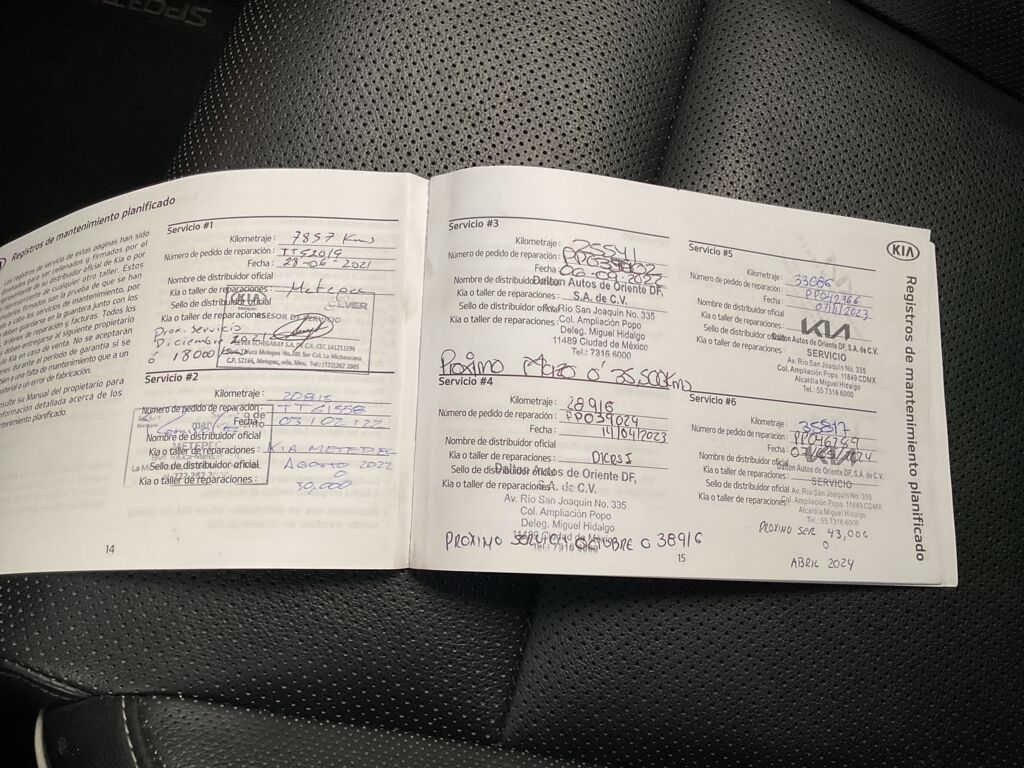 SPORT
Registros de mantenimiento planificado
registros de servicio de estas páginas han sido
para ser rellenados y firmados por el
de su distribuidor oficial de Kia o por
de cualquier otro taller. Estos
firmados son la prueba de que se han
a cabo los servicios de mantenimiento, por
deben guardarse en la guantera junto con los
órdenes de reparación y facturas. Todos los
entregarse al siguiente propietario
en caso de venta. No se aceptarán
durante el periodo de garantía si se
a una falta de mantenimiento que a un
material o un error de fabricación.
su Manual del propietario para
información detallada acerca de los
mantenimiento planificado.
Servicio #1
Kilometraje : 7857 Kms
Número de pedido de reparación : TT52019
Fecha : 28-06-2021
Nombre de distribuidor oficial
Kia o taller de reparaciones : Metepec
Sello de distribuidor oficial
Kia o taller de reparaciones
KIA CEVER
ASESOR DE SERVICIO
Prox. servicio
Diciembre 2021
ó 18000
C.P. 52148, Metepec, Edo. Mex.
Servicio #2
Kilometraje : 20815
Número de pedido de reparación : TT61558
Fecha : 03/02/22
Nombre de distribuidor oficial
Kia o taller de reparaciones : KIA METEPEC
Sello de distribuidor oficial AGOSTO 2022
Kia o taller de reparaciones : O
30,000
METEPEC
14
Servicio #3
Kilometraje : 25541
Número de pedido de reparación :
Fecha : 06-09-2022
Nombre de distribuidor oficial
Kia o taller de reparaciones :
Sello de distribuidor oficial
Kia o taller de reparaciones :
Dalton Autos de Oriente DF,
S.A. de C.V.
Av. Río San Joaquín No. 335
Col. Ampliación Popo
Deleg. Miguel Hidalgo
11489 Ciudad de México
Tel.: 7316 6000
Próximo Marzo ó 35,500Kms
Servicio #4
Kilometraje : 28916
Número de pedido de reparación : PP039024
Fecha : 14/04/2023
Nombre de distribuidor oficial
Kia o taller de reparaciones :
Sello de distribuidor oficial
Kia o taller de reparaciones :
Dalton Autos de Oriente DF,
S.A. de C.V.
Av. Río San Joaquín No. 335
Col. Ampliación Popo
Deleg. Miguel Hidalgo
11489 Ciudad de México
Tel.: 7316 6000
PROXIMO SERVICIO OCTUBRE O 38916
15
Servicio #5
Kilometraje : 33086
Número de pedido de reparación :
Fecha : 07/11/2023
Nombre de distribuidor oficial
Kia o taller de reparaciones :
Sello de distribuidor oficial
Kia o taller de reparaciones :
KIA
Dalton Autos de Oriente DF, S.A. de C.V.
SERVICIO
Av. Río San Joaquín No. 335
Col. Ampliación Popo 11849 CDMX
Alcaldía Miguel Hidalgo
Tel: 55 7316 6000
Servicio #6
Kilometraje : 35817
Número de pedido de reparación :
Fecha :
Nombre de distribuidor oficial
Kia o taller de reparaciones :
Sello de distribuidor oficial
Kia o taller de reparaciones :
KIA
Dalton Autos de Oriente DF, S.A. de C.V.
SERVICIO
Av. Río San Joaquín No. 335
Col. Ampliación Popo 11849 CDMX
Alcaldía Miguel Hidalgo
Tel: 55 7316 6000
PROXIMO SER 43,000
O
ABRIL 2024
KIA
Registros de mantenimiento planificado